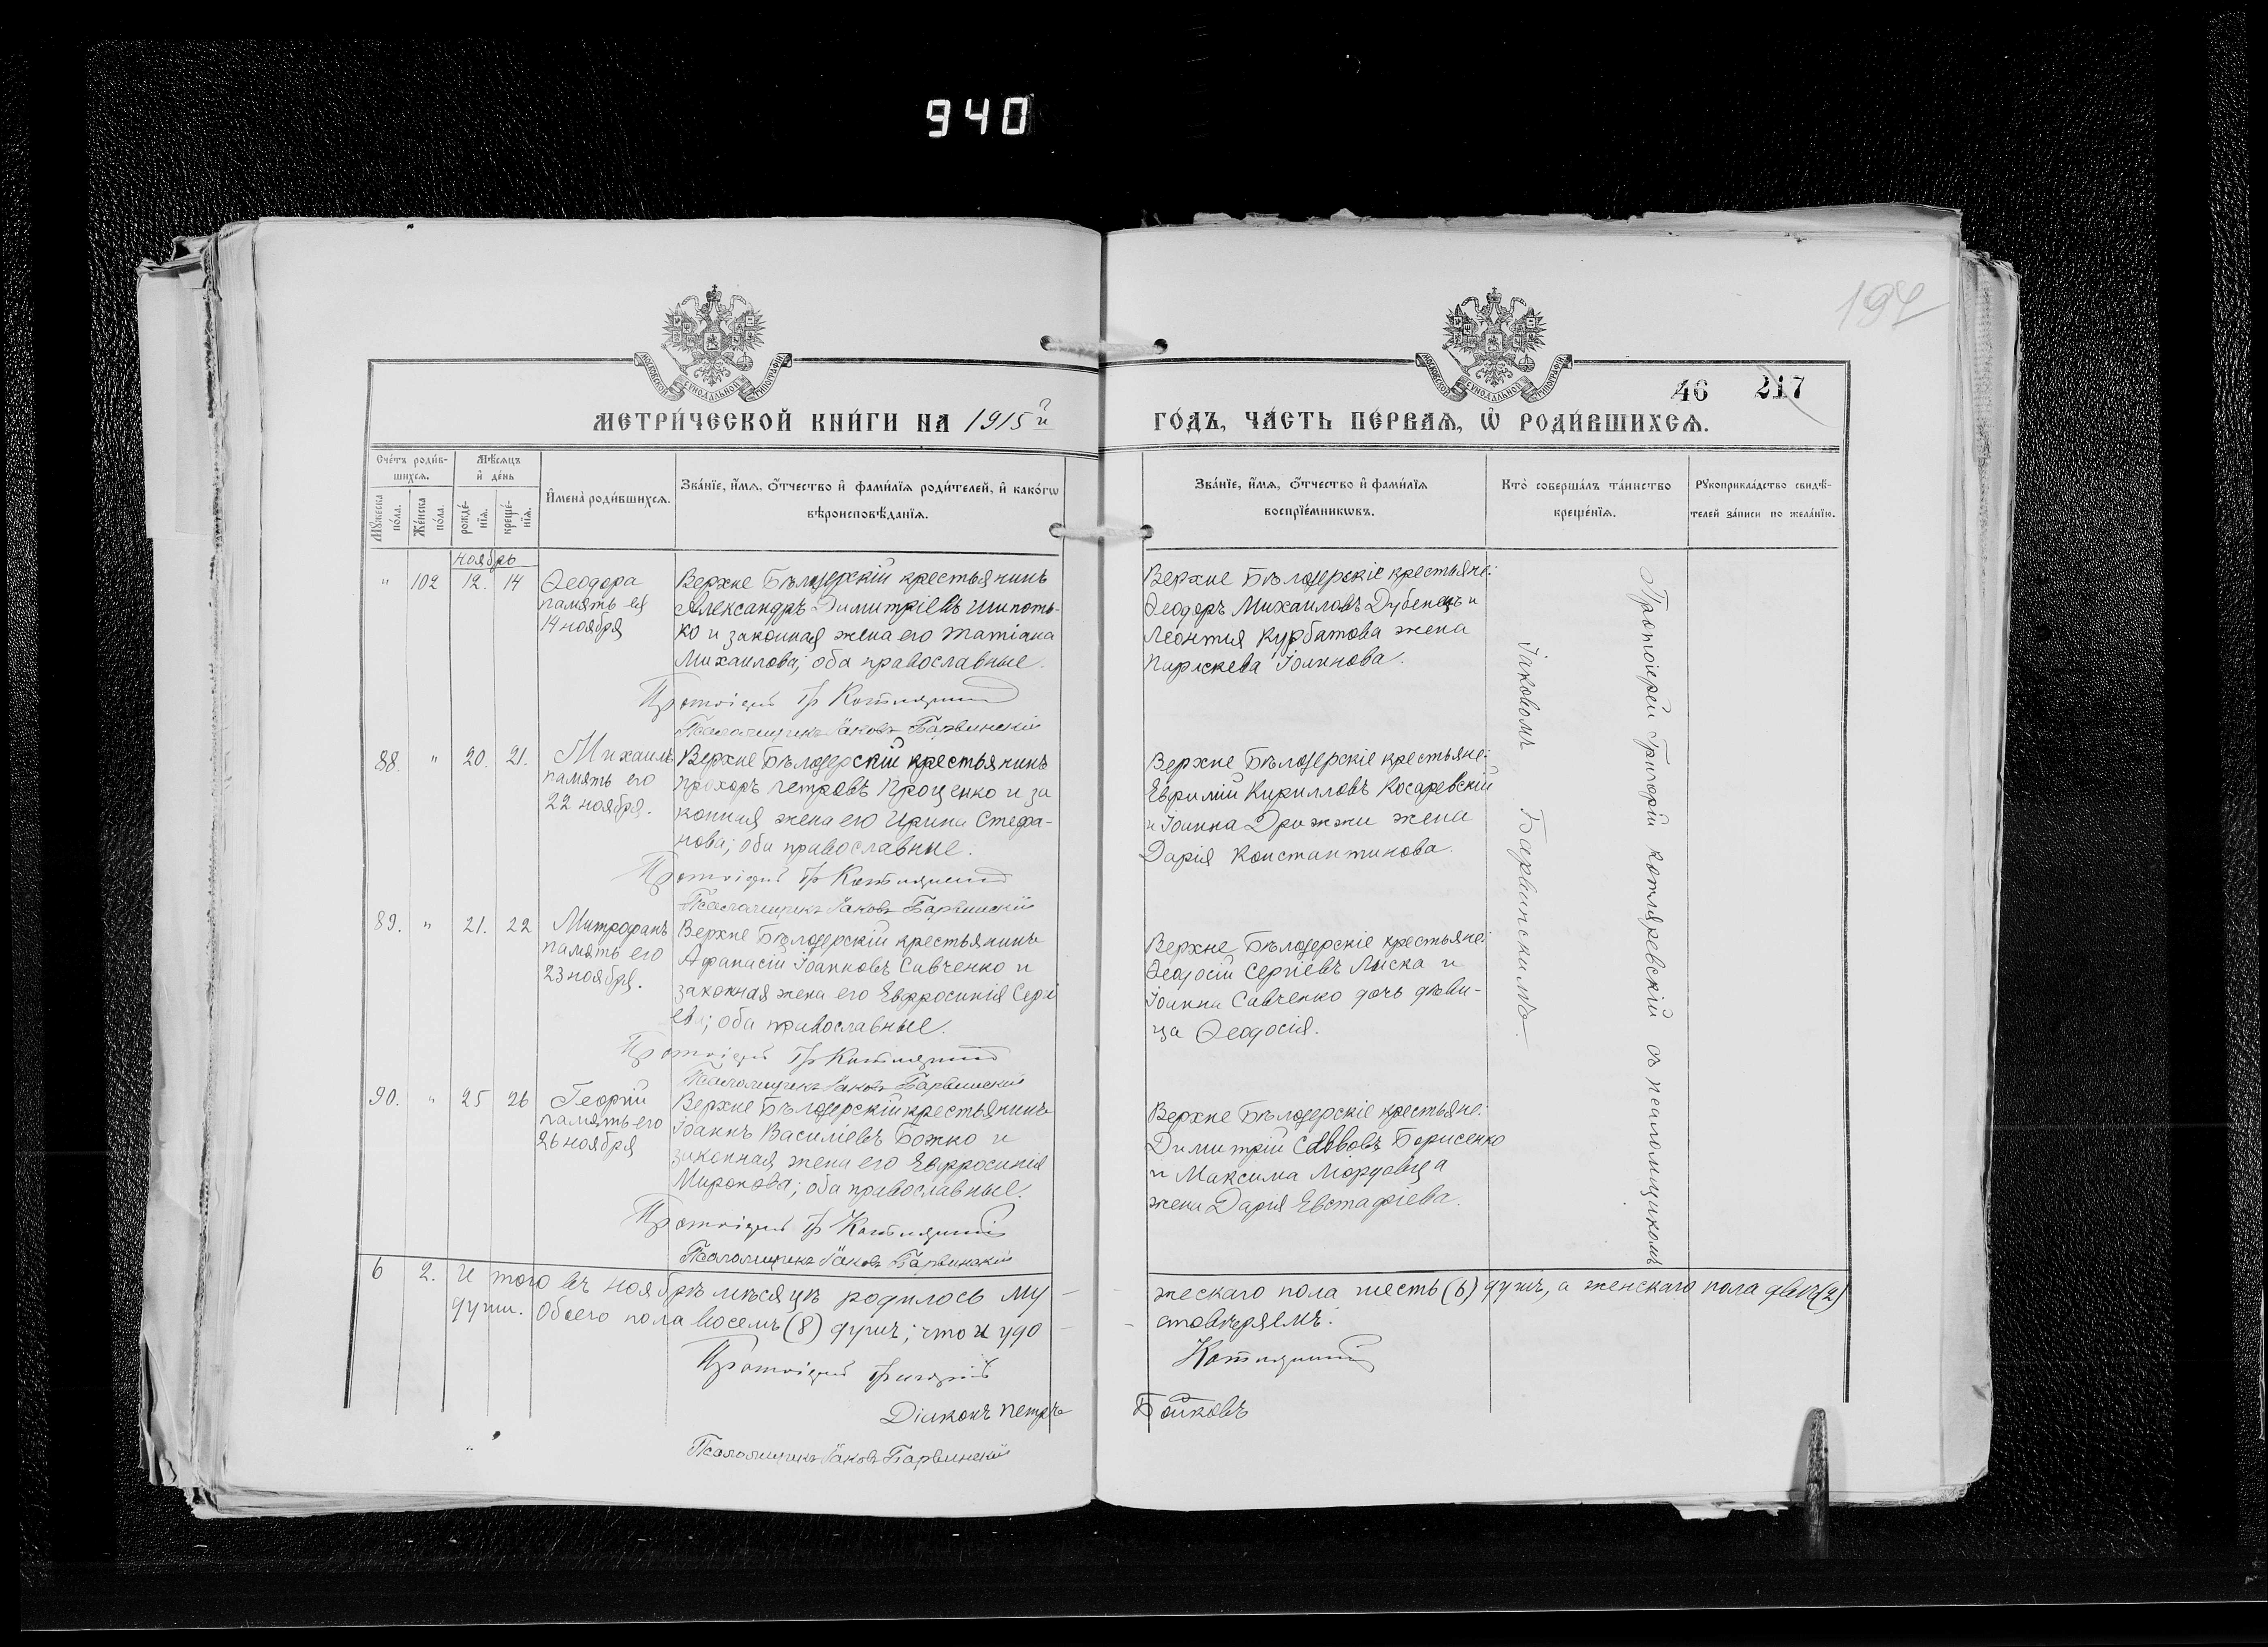 940
194
46 217
МЕТРИ́ЧЕСКОЙ КНИ́ГИ НА 1915й
ГО́ДЪ, ЧА́СТЬ ПЕ́РВАѦ, Ѡ҆ РОДИ́ВШИХСѦ.
Сче́тъ роди́в-
шихсѧ.
Мѣ́сѧцъ
и҆ де́нь
Мꙋ́жеска
по́ла.
Же́нска
по́ла.
рожде́-
нїѧ.
креще́-
нїѧ.
И҆мена̀ роди́вшихсѧ.
Зва́нїе, и҆́мѧ, ѻ҆́тчество и҆ фами́лїѧ роди́телей, и҆ како́гѡ
вѣроисповѣ́данїѧ.
Зва́нїе, и҆́мѧ, ѻ҆́тчество и҆ фами́лїѧ
воспрїе́мникѡвъ.
Кто̀ соверша́лъ та́инство
креще́нїѧ.
Рꙋкоприкла́дство свидѣ́-
телей за́писи по жела́нїю.
Ноябрь
" 102 12. 14
Ѳеодора
память ея
14 ноября
Верхне Бѣлозерскій крестьянинъ
Александръ Димитріевъ Шипоть-
ко и законная жена его Татіана
Михаилова; оба православные.
Протоіерей Гр Котляревскій
Псаломщикъ Іаковъ Барвинскій
Верхне Бѣлозерскіе крестьяне:
Ѳеодоръ Михаиловъ Дубенецъ и
Леонтія Курбатова жена
Параскева Іоаннова.
88. " 20. 21.
Михаилъ
память его
22 ноября.
Верхне Бѣлозерскій крестьянинъ
Прохоръ Петровъ Проценко и за
конная жена его Ирина Стефа-
нова; оба православные.
Протоіерей Гр Котляревскій
Псаломщикъ Іаковъ Барвинскій
Верхне Бѣлозерскіе крестьяне:
Ефримій Кирилловъ Косаревскій
и Іоанна Дрижжи жена
Дарія Константинова.
89. " 21. 22
Митрофанъ
память его
23 ноября.
Верхне Бѣлозерскій крестьянинъ
Аѳанасій Іоанновъ Савченко и
законная жена его Евфросинія Сергі
ева; оба православные.
Протоіерей Гр Котляревскій
Псаломщикъ Іаковъ Барвинскій
Верхне Бѣлозерскіе крестьяне:
Ѳеодосій Сергіевъ Лиска и
Іоанна Савченко дочь дѣви-
ца Ѳеодосія.
90. " 25 26
Георгій
память его
26 ноября
Верхне Бѣлозерскій крестьянинъ
Іоаннъ Василіевъ Божко и
законная жена его Евфросинія
Миронова; оба православные.
Протоіерей Гр Котляревскій
Псаломщикъ Іаковъ Барвинскій
Верхне Бѣлозерскіе крестьяне:
Димитрій Савовъ Борисенко
и Максима
жена Дарія Евстафіева.
Протоіерей Григорій Котляревскій съ псаломщикомъ
Іаковомъ Барвинскимъ.
6 2. И того въ ноябрѣ мѣсяцѣ родилось му
жескаго пола шесть (6) душъ, а женскаго пола двѣ (2)
души. Обоего пола восемь (8) душъ; что и удо
стовѣряемъ:
Протоіерей Григорій Котляревскій
Діаконъ Петръ Бойковъ
Псаломщикъ Іаковъ Барвинскій